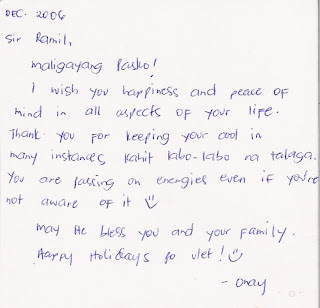 DEC. 2006
Sir Ramil,
maligayang Pasko!
I wish you happiness and peace of
mind in all aspects of your life.
Thank you for keeping your cool in
many instances kahit labo-labo na talaga.
You are passing on energies even if you're
not aware of it
may He bless you and your family.
Happy Holidays po ulet!
- Onay